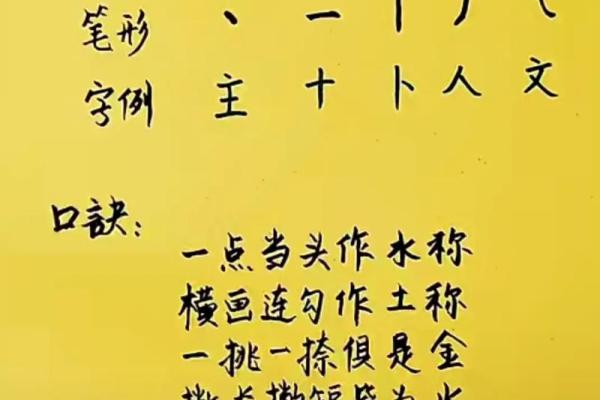 笔形 丶 一 丨 丿 ㇏
字例 主 十 卜 人 文
口訣：
一点当头作水称
横画连勾作土称
一挑一捺俱是金